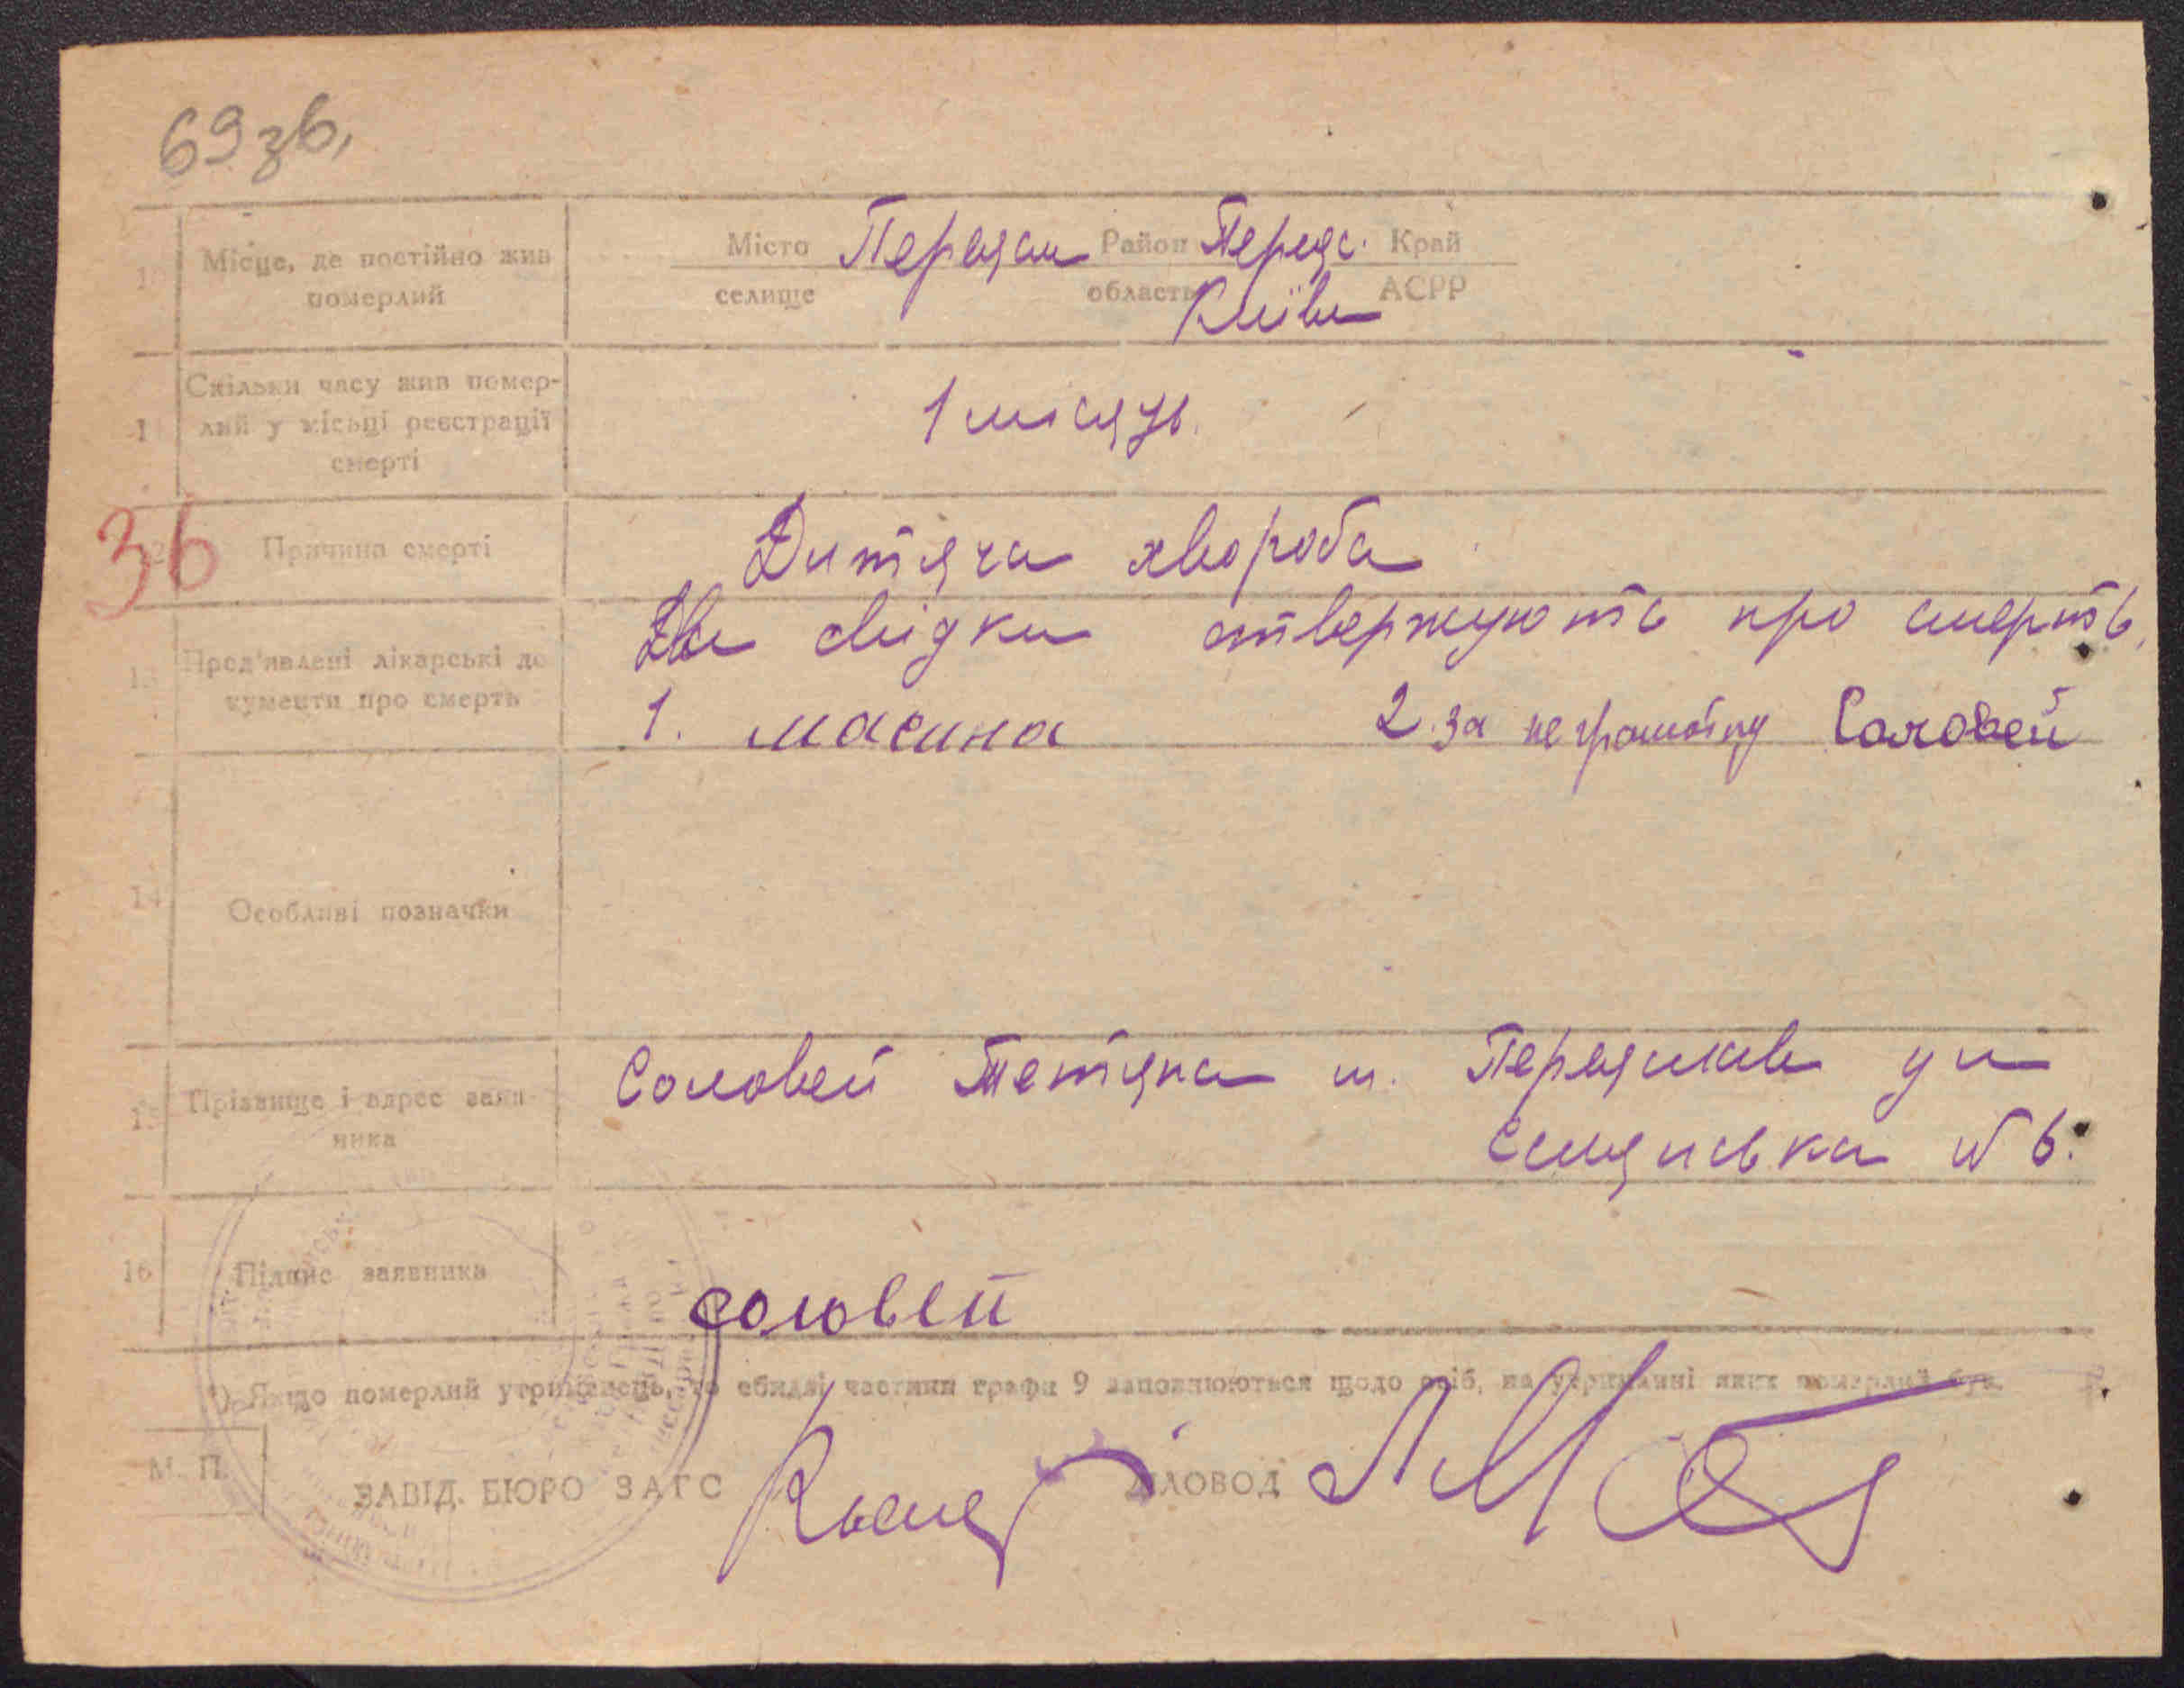 69 зв,
10 Місце, де постійно жив померлий
Місто Переяслав Район Переяс. Край
селище область Київ АСРР
11 Скільки часу жив помер-
лий у місьці реєстрації
смерті
1 місяць.
36
12 Причина смерті
Дитяча хвороба
13 Пред'явлені лікарські до
кументи про смерть
Два свідки ствержують про смерть,
1. Масина 2. за неграмотну Соловей
14 Особливі позначки
15 Прізвище і адрес заяв-
ника
Соловей Тетяна м. Переяслав ул
№ 6.
16 Підпис заявника
соловей
*) Якщо померлий утриманець, то обидві частини графи 9 заповнюються щодо осіб, на утриманні яких померлий був.
М. П.
ЗАВІД. БЮРО ЗАГС ДІЛОВОД